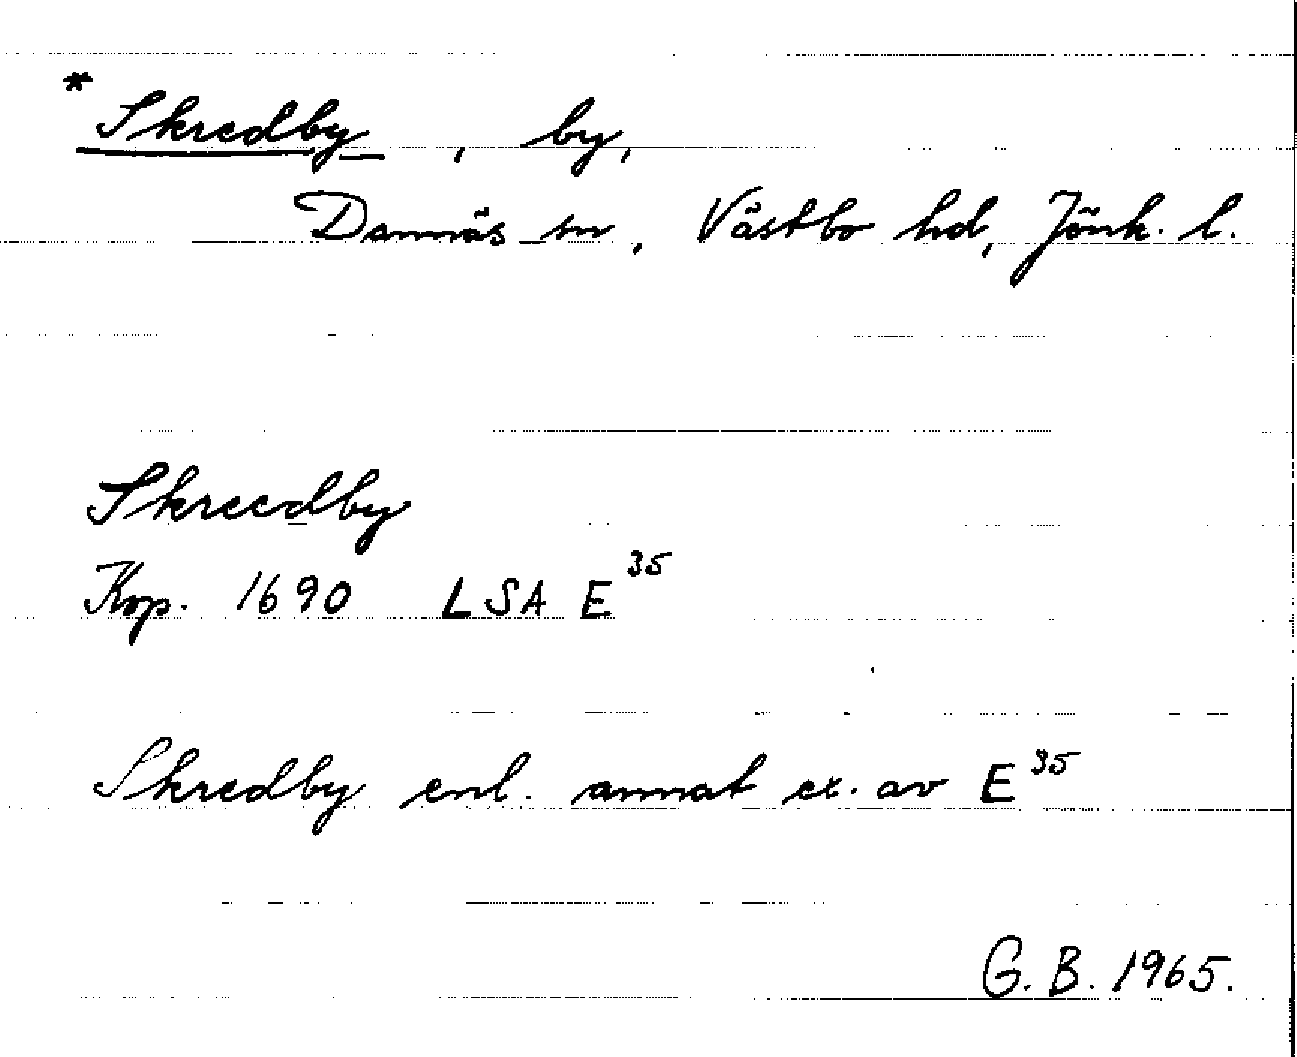 * Skredby, by,
Dannäs sn, Västbo hd, Jönk. l.
Skreedby
Kop. 1690 LSA E 35
Skredby enl. annat ex. av E 35
G. B. 1965.